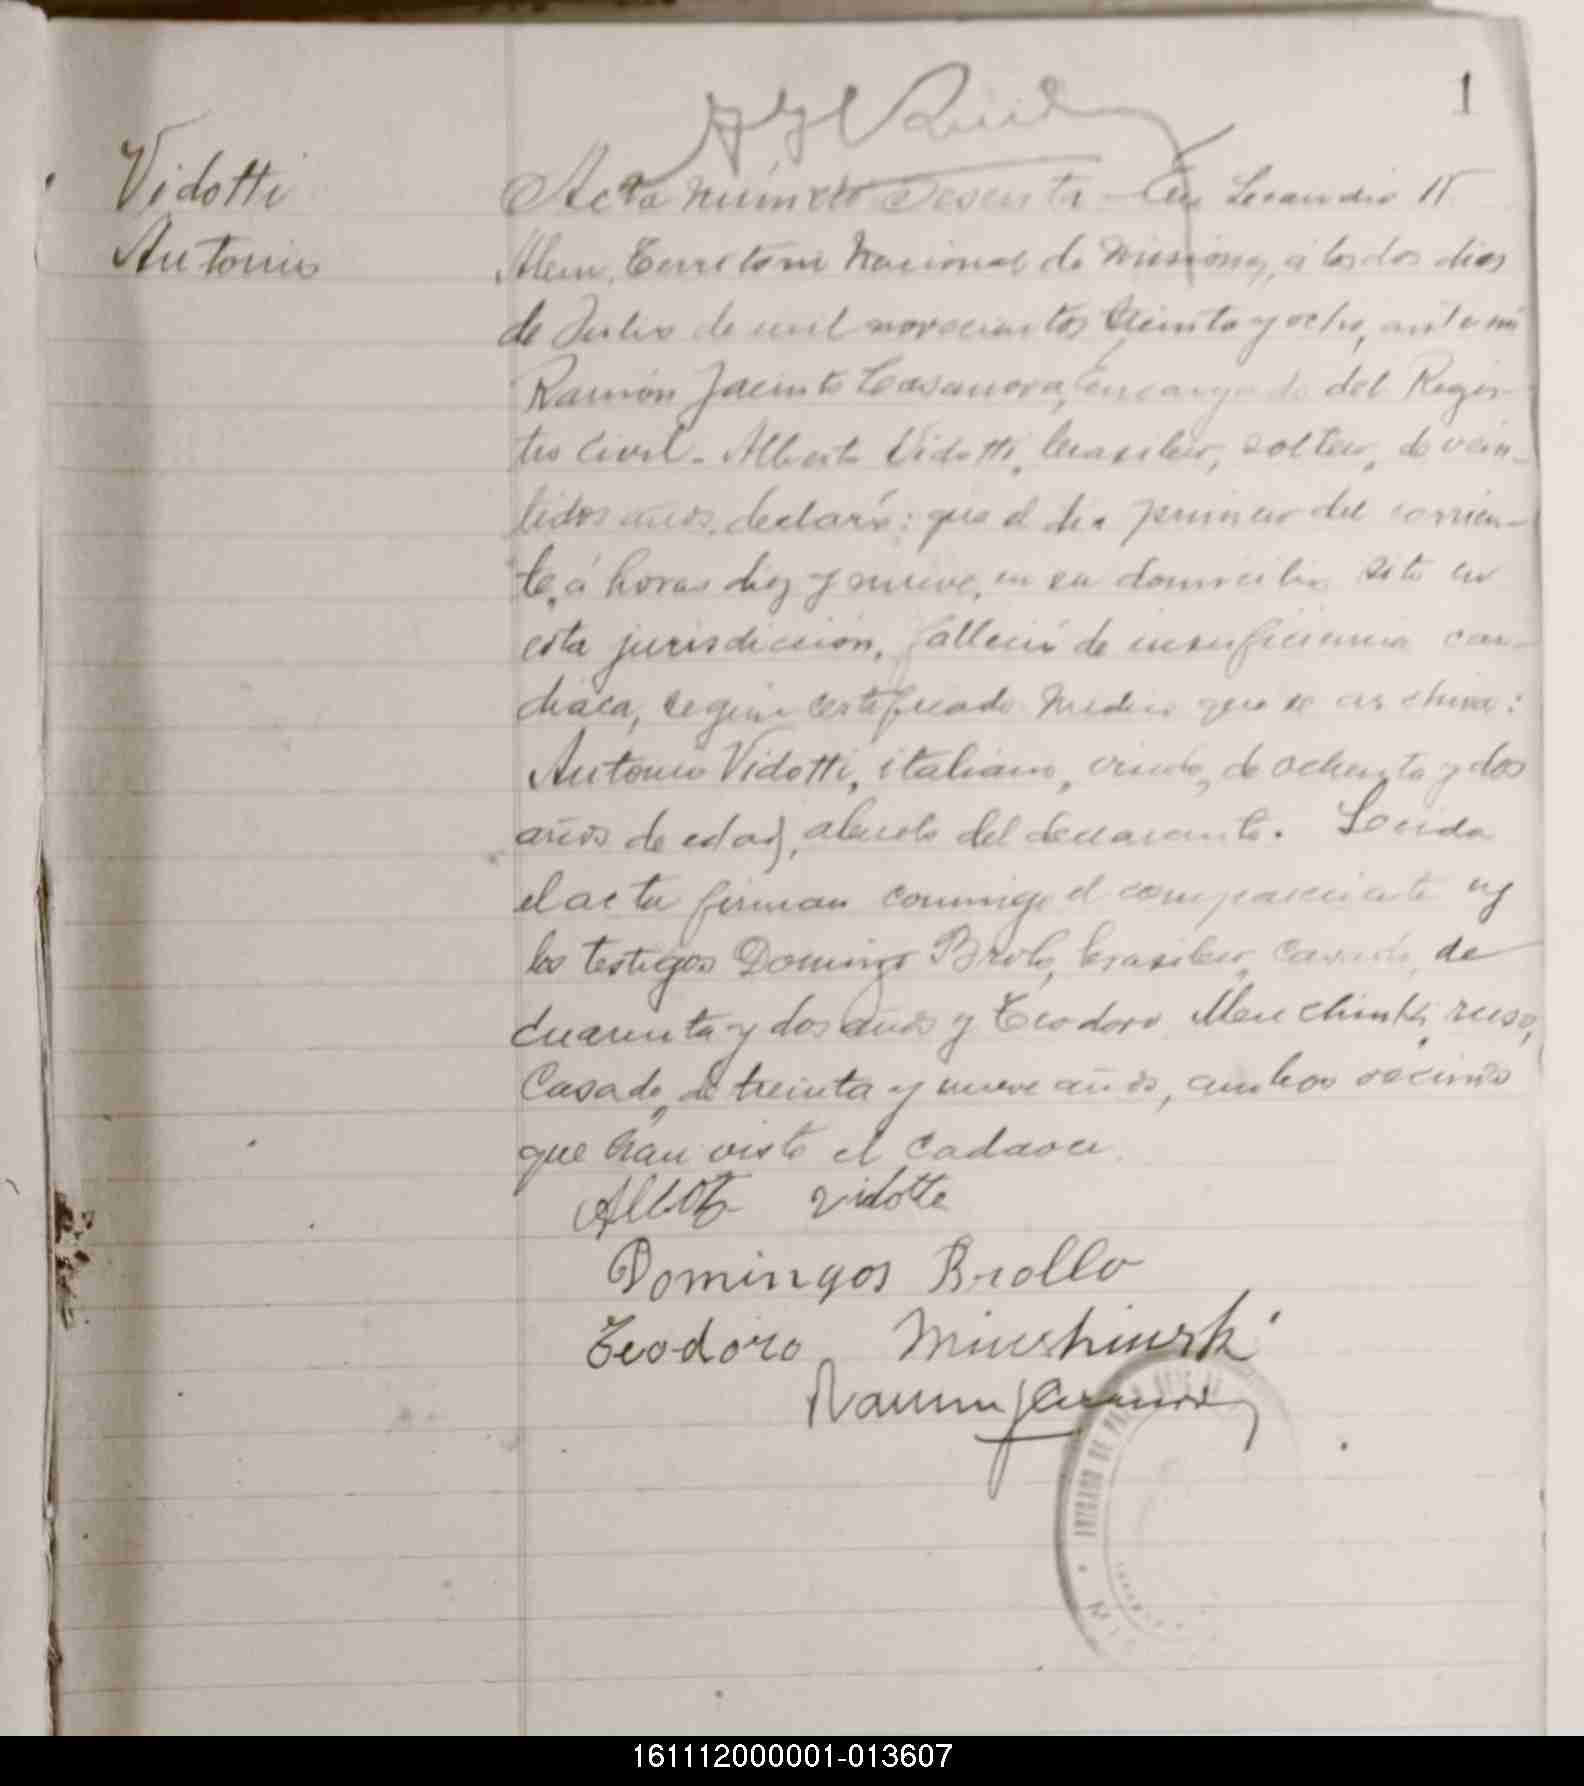 1
Vidotti
Antonio
Acta número sesenta - En Leandro N.
Alem, Territorio Nacional de Misiones, á los dos dias
de Julio de mil novecientos treinta y ocho, ante mi
Ramón Jacinto Casanova, Encargado del Regis-
tro Civil - Alberto Vidotti, brasilero, soltero, de vein-
tidos años, declaró: que el dia primero del corrien-
te, á horas diez y nueve, en su domicilio sito en
esta jurisdicción, falleció de insuficiencia car-
diaca, según certificado medico que se archiva:
Antonio Vidotti, italiano, viudo, de ochenta y dos
años de edad, abuelo del declarante. Leida
el acta firman conmigo el compareciente y
los testigos Domingo Brolo, brasilero, casado, de
cuarenta y dos años y Teodoro Menchinki, ruso,
Casado, de treinta y nueve años, ambos vecinos
que han visto el cadaver.
Vidotte
Domingos Brollo
Teodoro
161112000001-013607